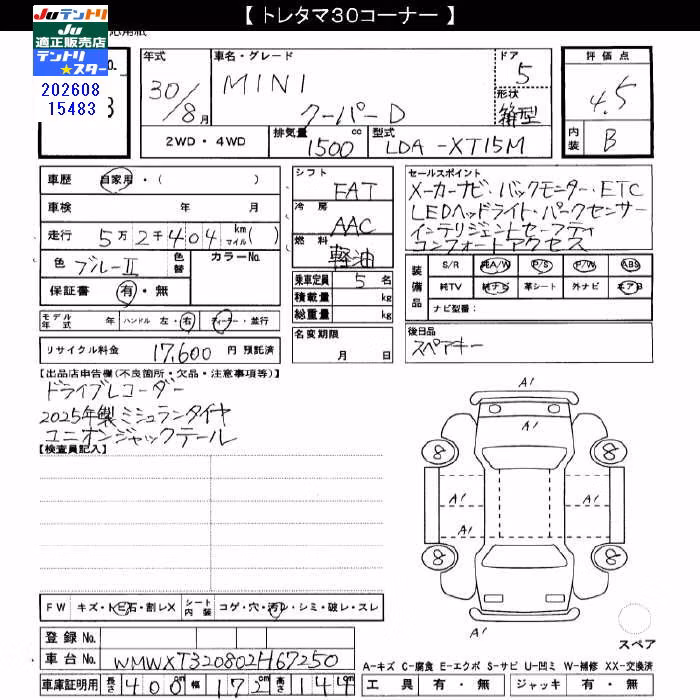 【 トレタマ30コーナー 】
Juテントリ
Ju
適正販売店
テントリ
★スター
202608
15483
応用紙
No.
3
年式
30/8月
車名・グレード
MINI
クーパーD
ドア
5
形状
箱型
評価点
4.5
内装 B
2WD・4WD
排気量 1500 cc
型式 LDA-XT15M
車歴 自家用・( )
車検 年 月
走行 5万2千404 km マイル( )
色 ブルーII 色替
カラーNo.
保証書 有・無
モデル年式 年 ハンドル 左・右 ディーラー・並行
リサイクル料金 17,600 円 預託済
シフト
FAT
冷房
AAC
燃料
軽油
乗車定員 5 名
積載量 kg
総重量 kg
名変期限
月 日
セールスポイント
メーカーナビ・バックモニター・ETC
LEDヘッドライト・パークセンサー
インテリジェントセーフティ
コンフォートアクセス
装備品
S/R 純A/W P/S P/W ABS
純TV 純ナビ 革シート 外ナビ エアB
ナビ型番:
後日品
スペアキー
【出品店申告欄(不良箇所・欠品・注意事項等)】
ドライブレコーダー
2025年製ミシュランタイヤ
ユニオンジャックテール
【検査員記入】
A1
A1
8 8
A1 A1
A1
8 8
A1
スペア
FW キズ・トビ石・割レX
シート内装 コゲ・穴・汚レ・シミ・破レ・スレ
登録 No.
車台 No. WMWXT320802H67250
車庫証明用 長さ 400 cm 幅 172 cm 高さ 144 cm
A-キズ C-腐食 E-エクボ S-サビ U-凹ミ W-補修 XX-交換済
工具 有・無 ジャッキ 有・無